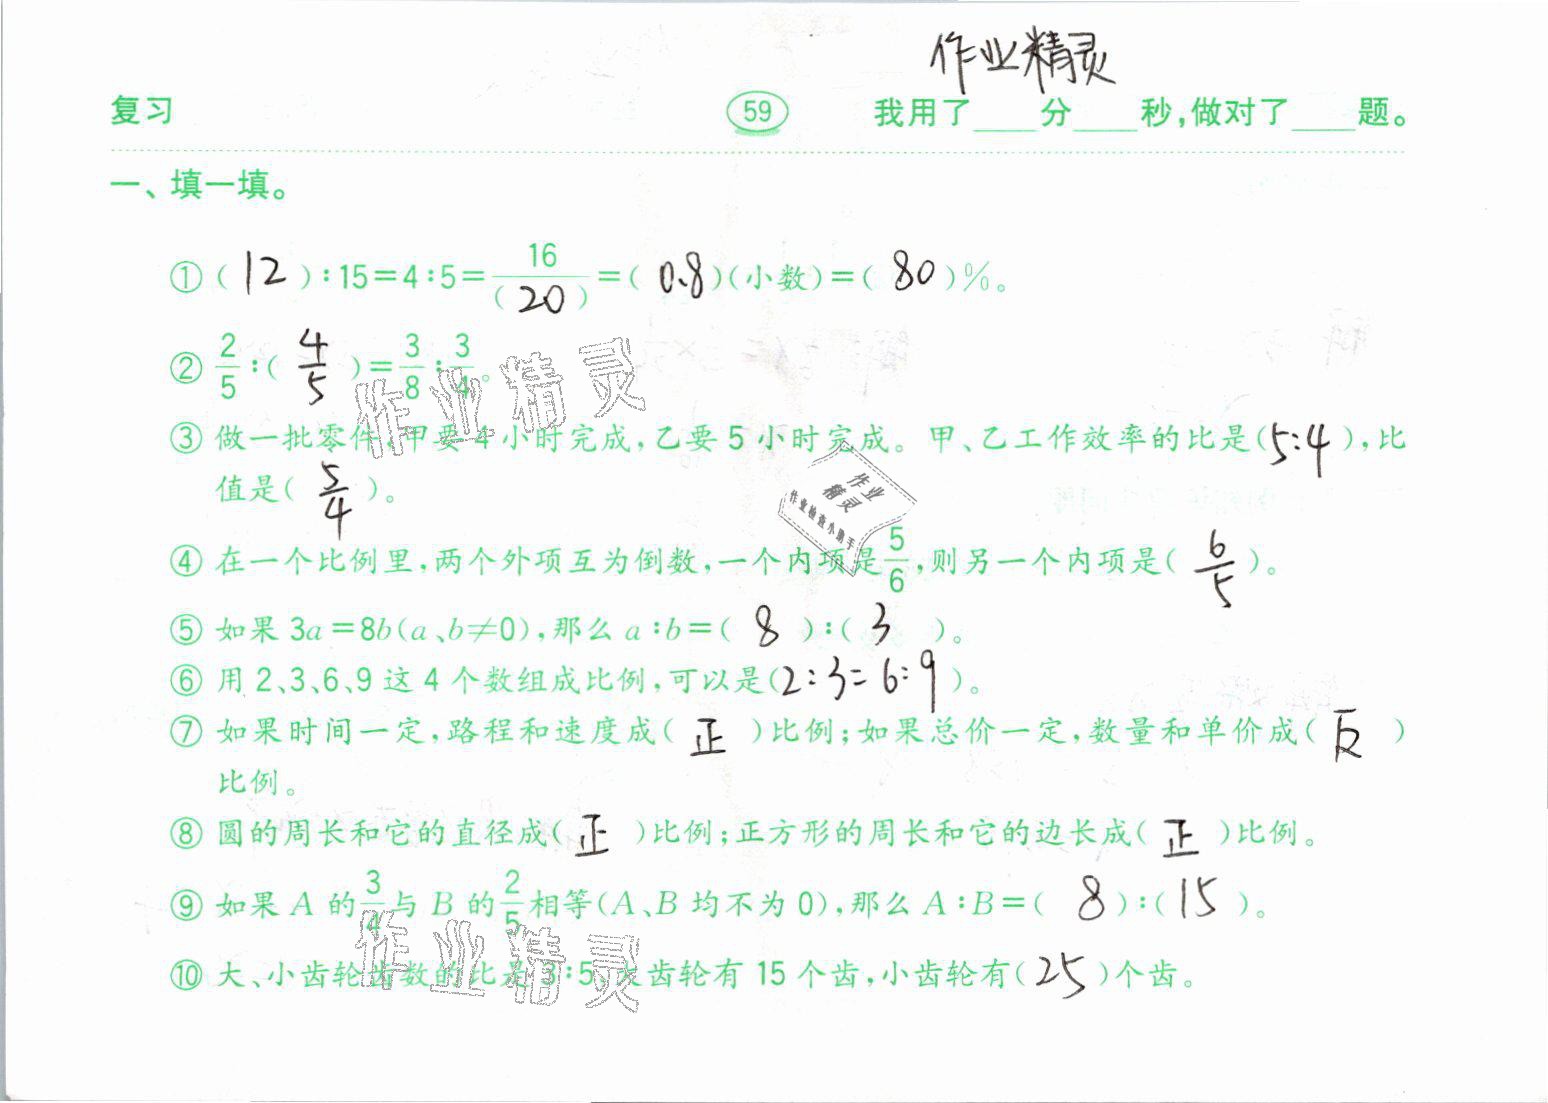 作业精灵
复习 59 我用了____分____秒,做对了____题。
一、填一填。
①(12):15=4:5=16/(20)=(0.8)(小数)=(80)%。
②2/5:(4/5)=3/8:3/4。
③做一批零件,甲要4小时完成,乙要5小时完成。甲、乙工作效率的比是(5:4),比
值是(5/4)。
④在一个比例里,两个外项互为倒数,一个内项是5/6,则另一个内项是(6/5)。
⑤如果3a=8b(a、b≠0),那么a:b=(8):(3)。
⑥用2、3、6、9这4个数组成比例,可以是(2:3=6:9)。
⑦如果时间一定,路程和速度成(正)比例;如果总价一定,数量和单价成(反)
比例。
⑧圆的周长和它的直径成(正)比例;正方形的周长和它的边长成(正)比例。
⑨如果A的3/4与B的2/5相等(A、B均不为0),那么A:B=(8):(15)。
⑩大、小齿轮齿数的比是3:5,大齿轮有15个齿,小齿轮有(25)个齿。
作业精灵
作业
精灵
作业检查小助手
作业精灵